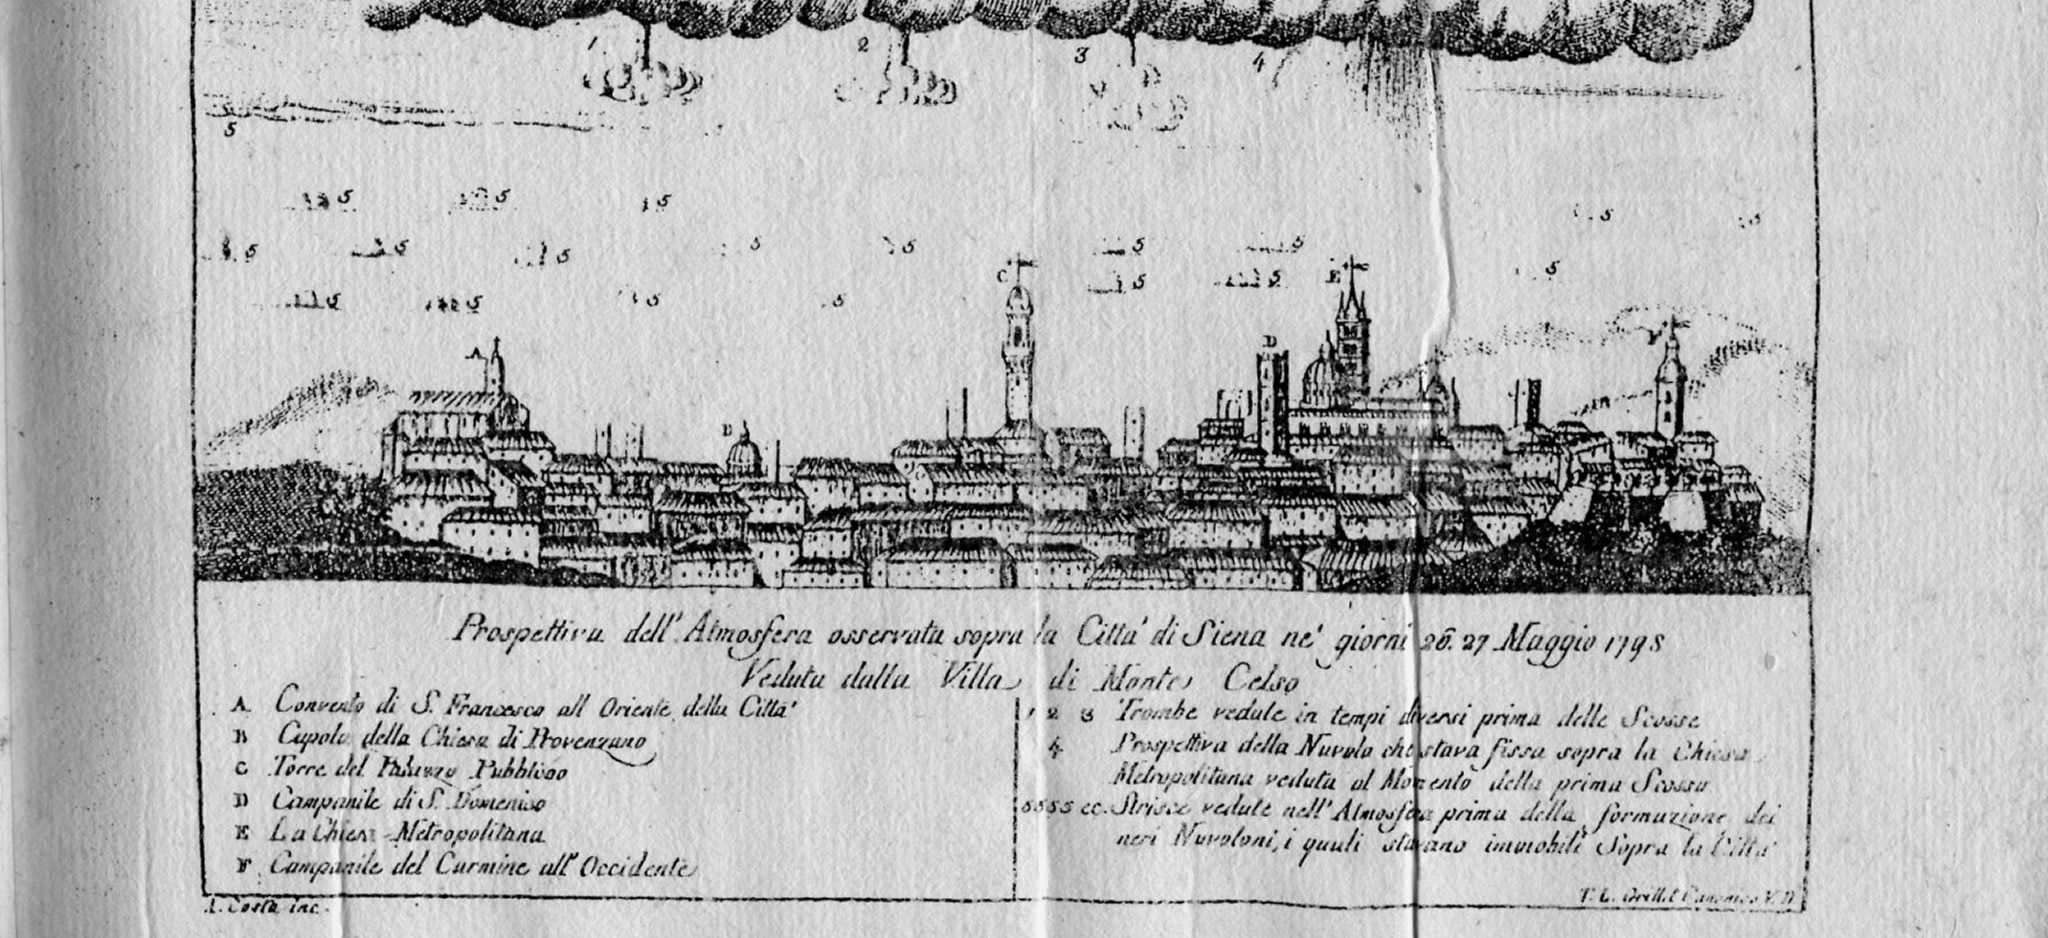 1 2 3 4
5
5 5 5 5 5
5 5 5 5 5 5 5 5
C 5 E 5 5
5 5 5 5
A D F
B
Prospettiva dell' Atmosfera osservata sopra la Citta' di Siena ne' giorni 26. 27 Maggio 1798
Veduta dalla Villa di Monte Celso
A Convento di S. Francesco all Oriente della Citta'
B Cupola della Chiesa di Provenzano
C Torre del Palazzo Pubblico
D Campanile di S. Domenico
E La Chiesa Metropolitana
F Campanile del Carmine all' Occidente
1 2 3 Trombe vedute in tempi diversi prima delle Scosse
4 Prospettiva della Nuvola che stava fissa sopra la Chiesa
Metropolitana veduta al Momento della prima Scossa
5555 ec. Strisce vedute nell' Atmosfera prima della formazione dei
neri Nuvoloni, i quali stavano immobili Sopra la Citta'
A. Costa inc.
Canonico